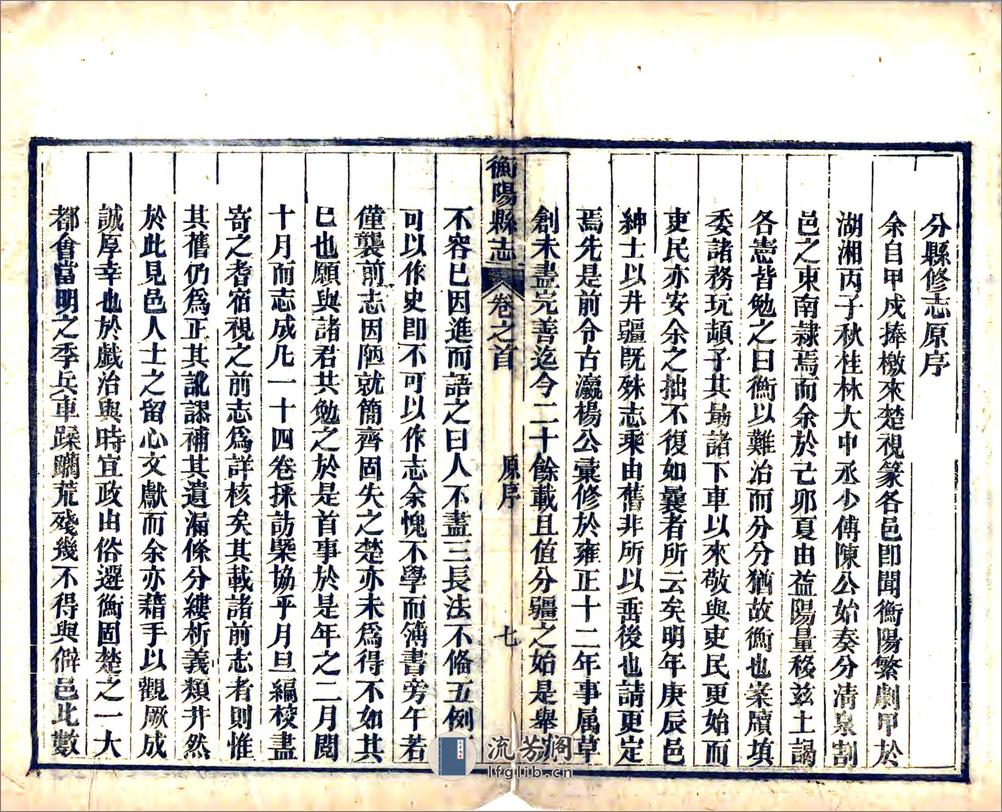 分縣修志原序
余自甲戌捧檄來楚視篆各邑卽聞衡陽繁劇甲於
湖湘丙子秋桂林大中丞少傅陳公始奏分清泉割
邑之東南隷焉而余於己卯夏由益陽量移茲土謁
各憲皆勉之曰衡以難治而分分猶故衡也案牘填
委諸務玩頽子其勗諸下車以來敬與吏民更始而
吏民亦安余之拙不復如曩者所云矣明年庚辰邑
紳士以井疆旣殊志乘由舊非所以垂後也請更定
焉先是前令古瀛楊公彚修於雍正十二年事属草
創未盡完善迄今二十餘載且值分疆之始是舉
衡陽縣志 卷之首 原序 七
不容已因進而語之曰人不盡三長法不俻五例
可以作史即不可以作志余愧不學而簿書旁午若
僅襲前志因陋就簡齊固失之楚亦未爲得不如其
已也願與諸君共勉之於是首事於是年之二月閱
十月而志成凡一十四卷採訪槩協乎月旦編校盡
寄之耆宿視之前志爲詳核矣其載諸前志者則惟
其舊仍爲正其訛謬補其遺漏條分縷析義類井然
於此見邑人士之留心文獻而余亦藉手以觀厥成
誠厚幸也於戲治與時宜政由俗遷衡固楚之一大
都會當明之季兵車蹂躪荒殘幾不得與僻邑比數
流芳閣
lfglib.cn